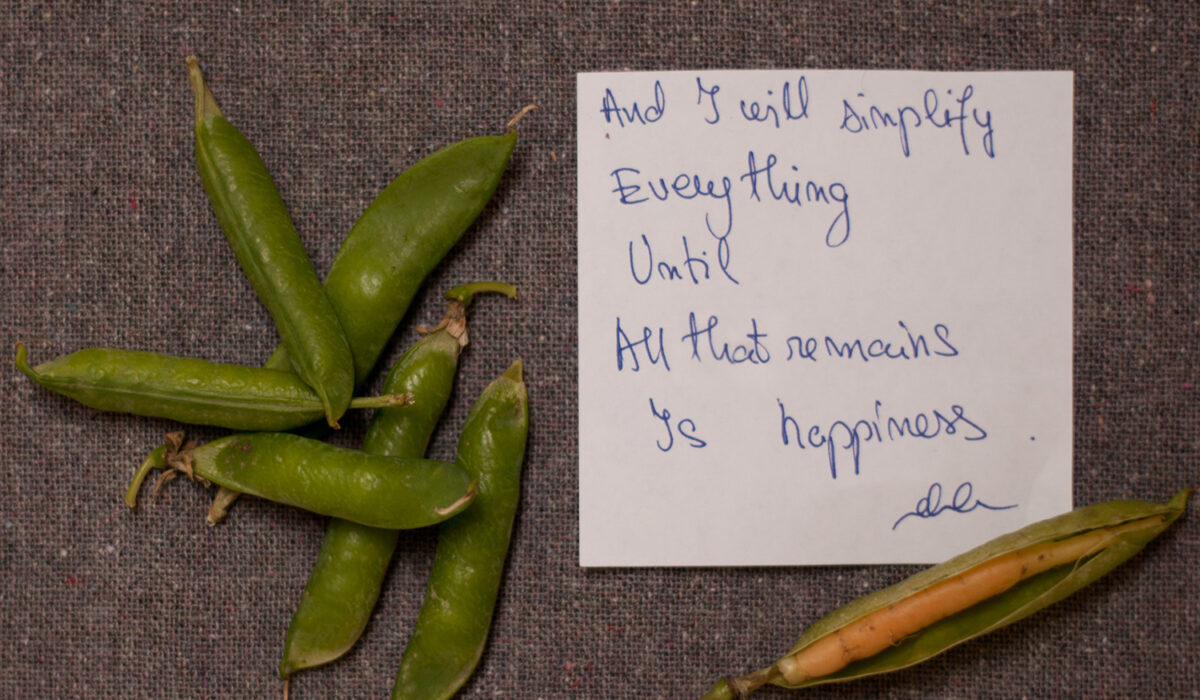 And I will simplify
Everything
Until
All that remains
Is happiness.